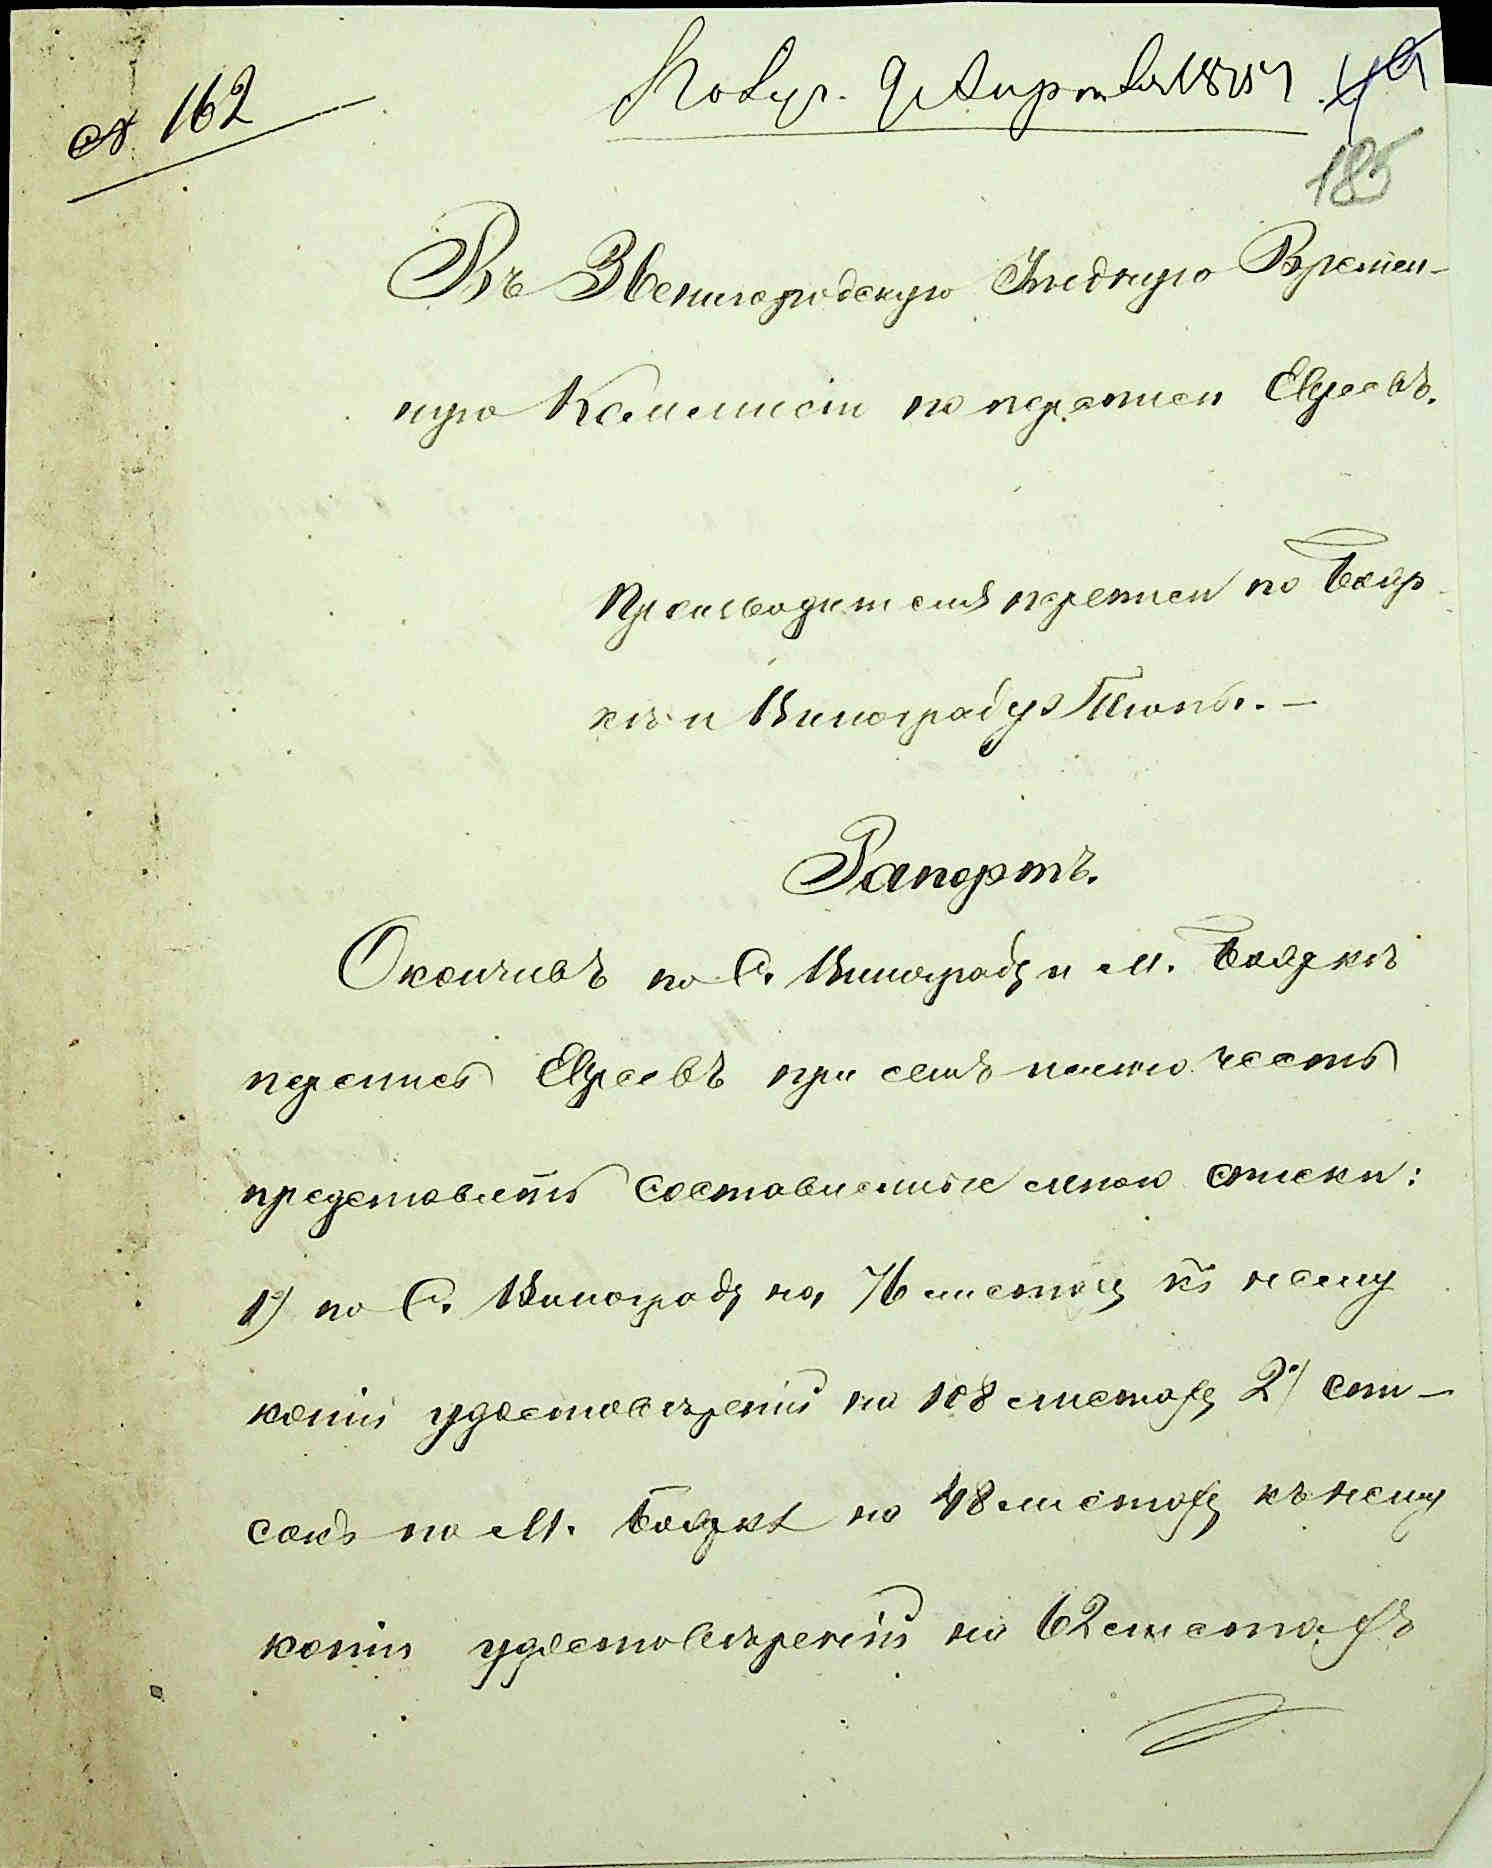 № 162
Получ. 9 Апреля 1875 г.
185
Въ Звенигородскую Уѣздную Времен-
ную Коммисiю по переписи Евреевъ.
Производителя переписи по Бояр-
кѣ и Винограду
Рапортъ.
Окончивъ по С. Винограду и М. Бояркѣ
перепись Евреевъ при семъ имѣю честь
представить составленные мною списки:
1) по С. Винограду на 76 листахъ къ нему
копiи удостовѣренiй на 108 листахъ 2) спи-
сокъ по М. Бояркѣ на 48 листахъ къ нему
копiи удостовѣренiй на 62 листахъ